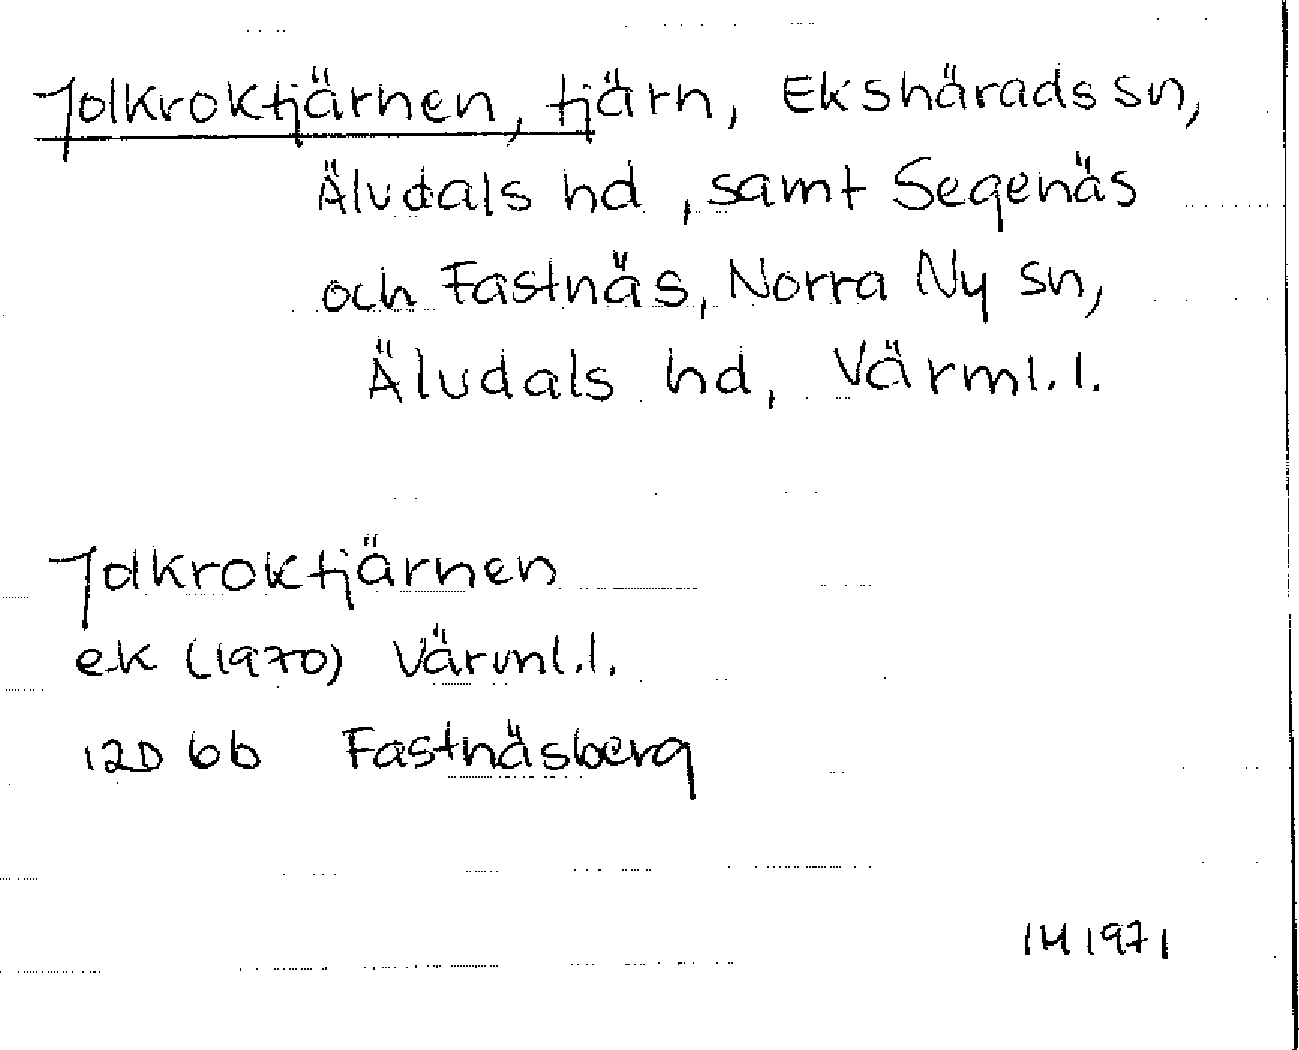 Jolkroktjärnen, tjärn, Ekshärads sn,
Älvdals hd, samt Segenäs
och Fastnäs, Norra Ny sn,
Älvdals hd, Värml. l.
Jolkroktjärnen
ek (1970) Värml. l.
12D 6b Fastnäsberg
IM 1971